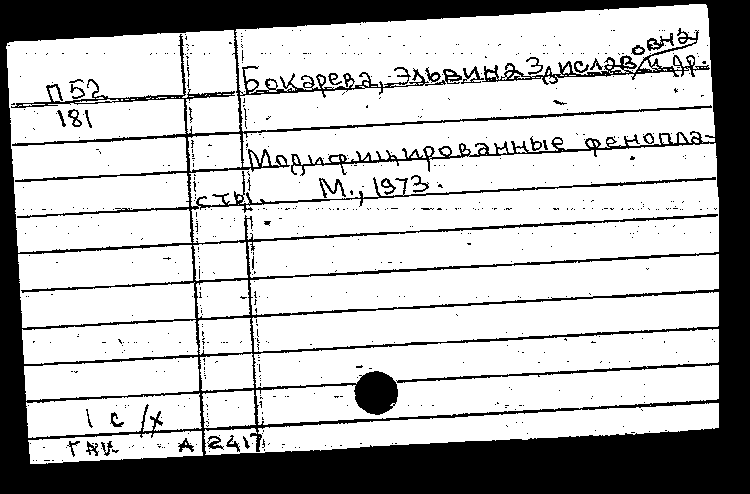 П52
181
Бокарева, Эльвина Здиславовна и др.
Модифицированные фенопла-
сты. М., 1973.
1 с/х
А 2417